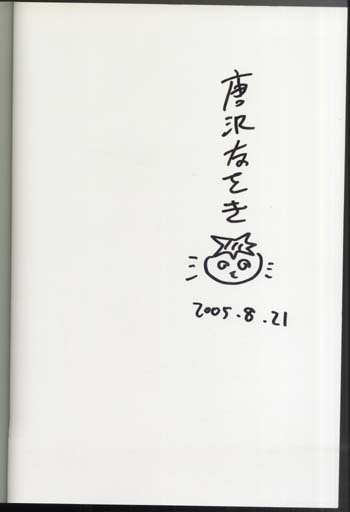 唐沢なをき
2005.8.21